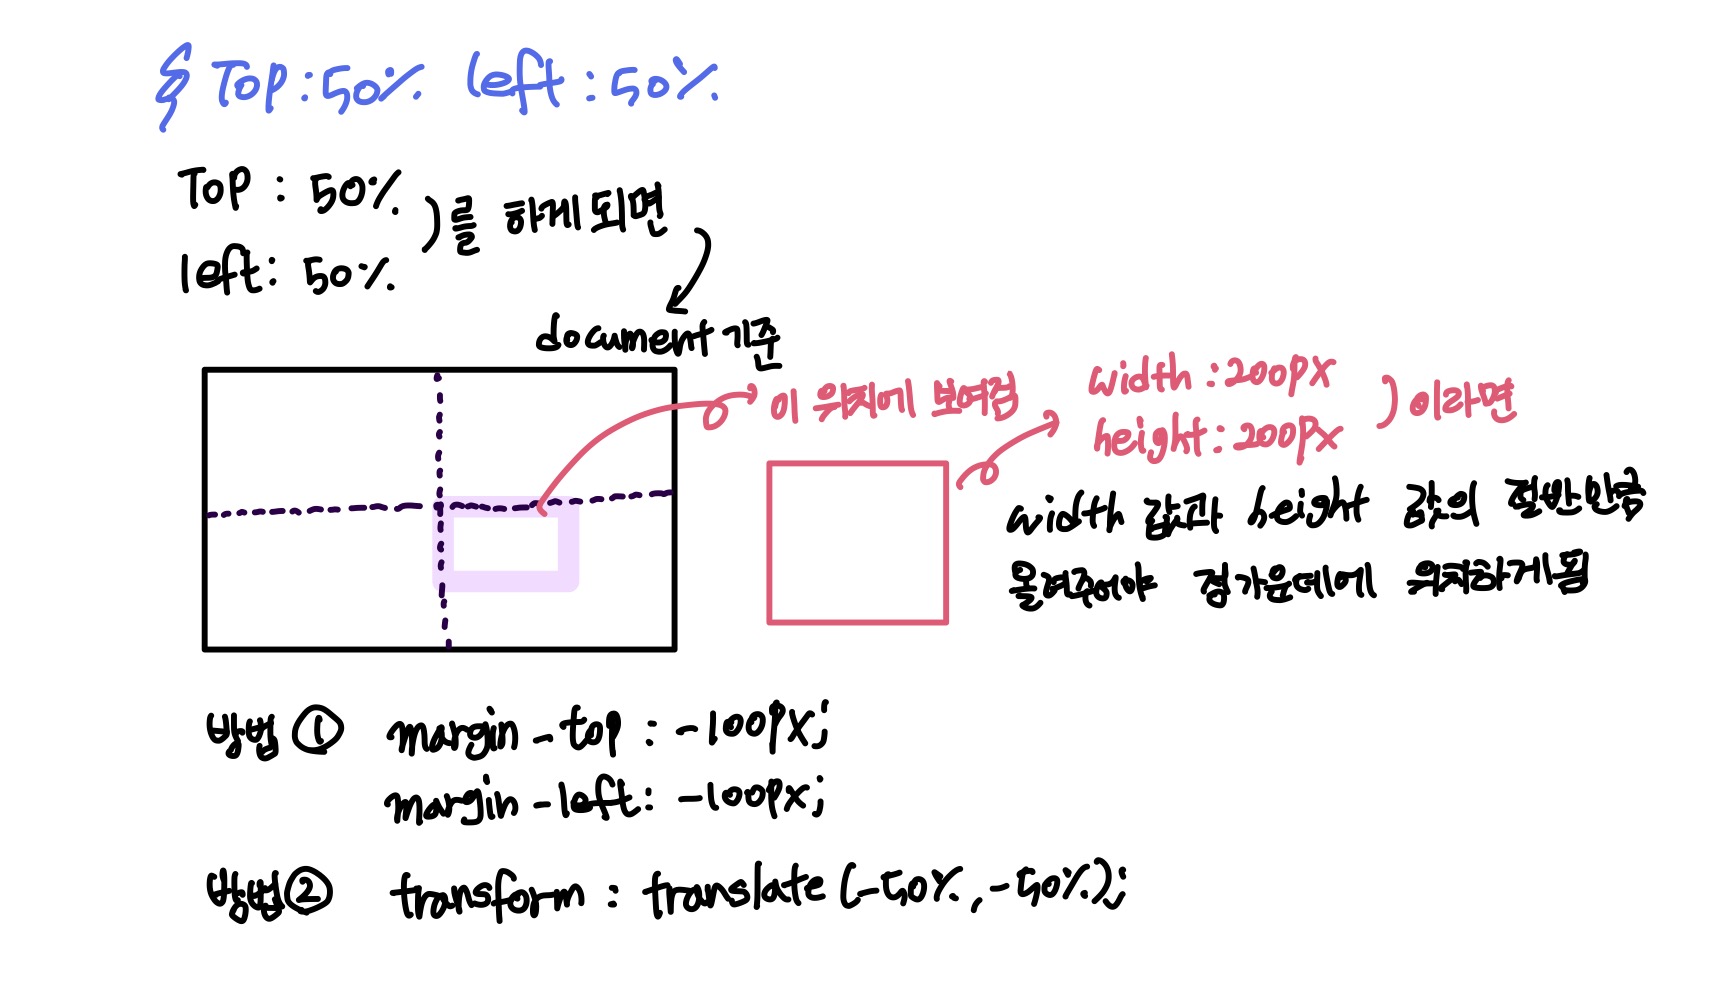 § Top : 50% left : 50%
Top : 50%
left : 50%
) 를 하게 되면
document 기준
이 위치에 보여짐
width : 200px
height : 200px
) 이라면
width 값과 height 값의 절반만큼
올려주어야 정가운데에 위치하게됨
방법 ① margin-top : -100px;
margin-left : -100px;
방법 ② transform : translate (-50%, -50%);